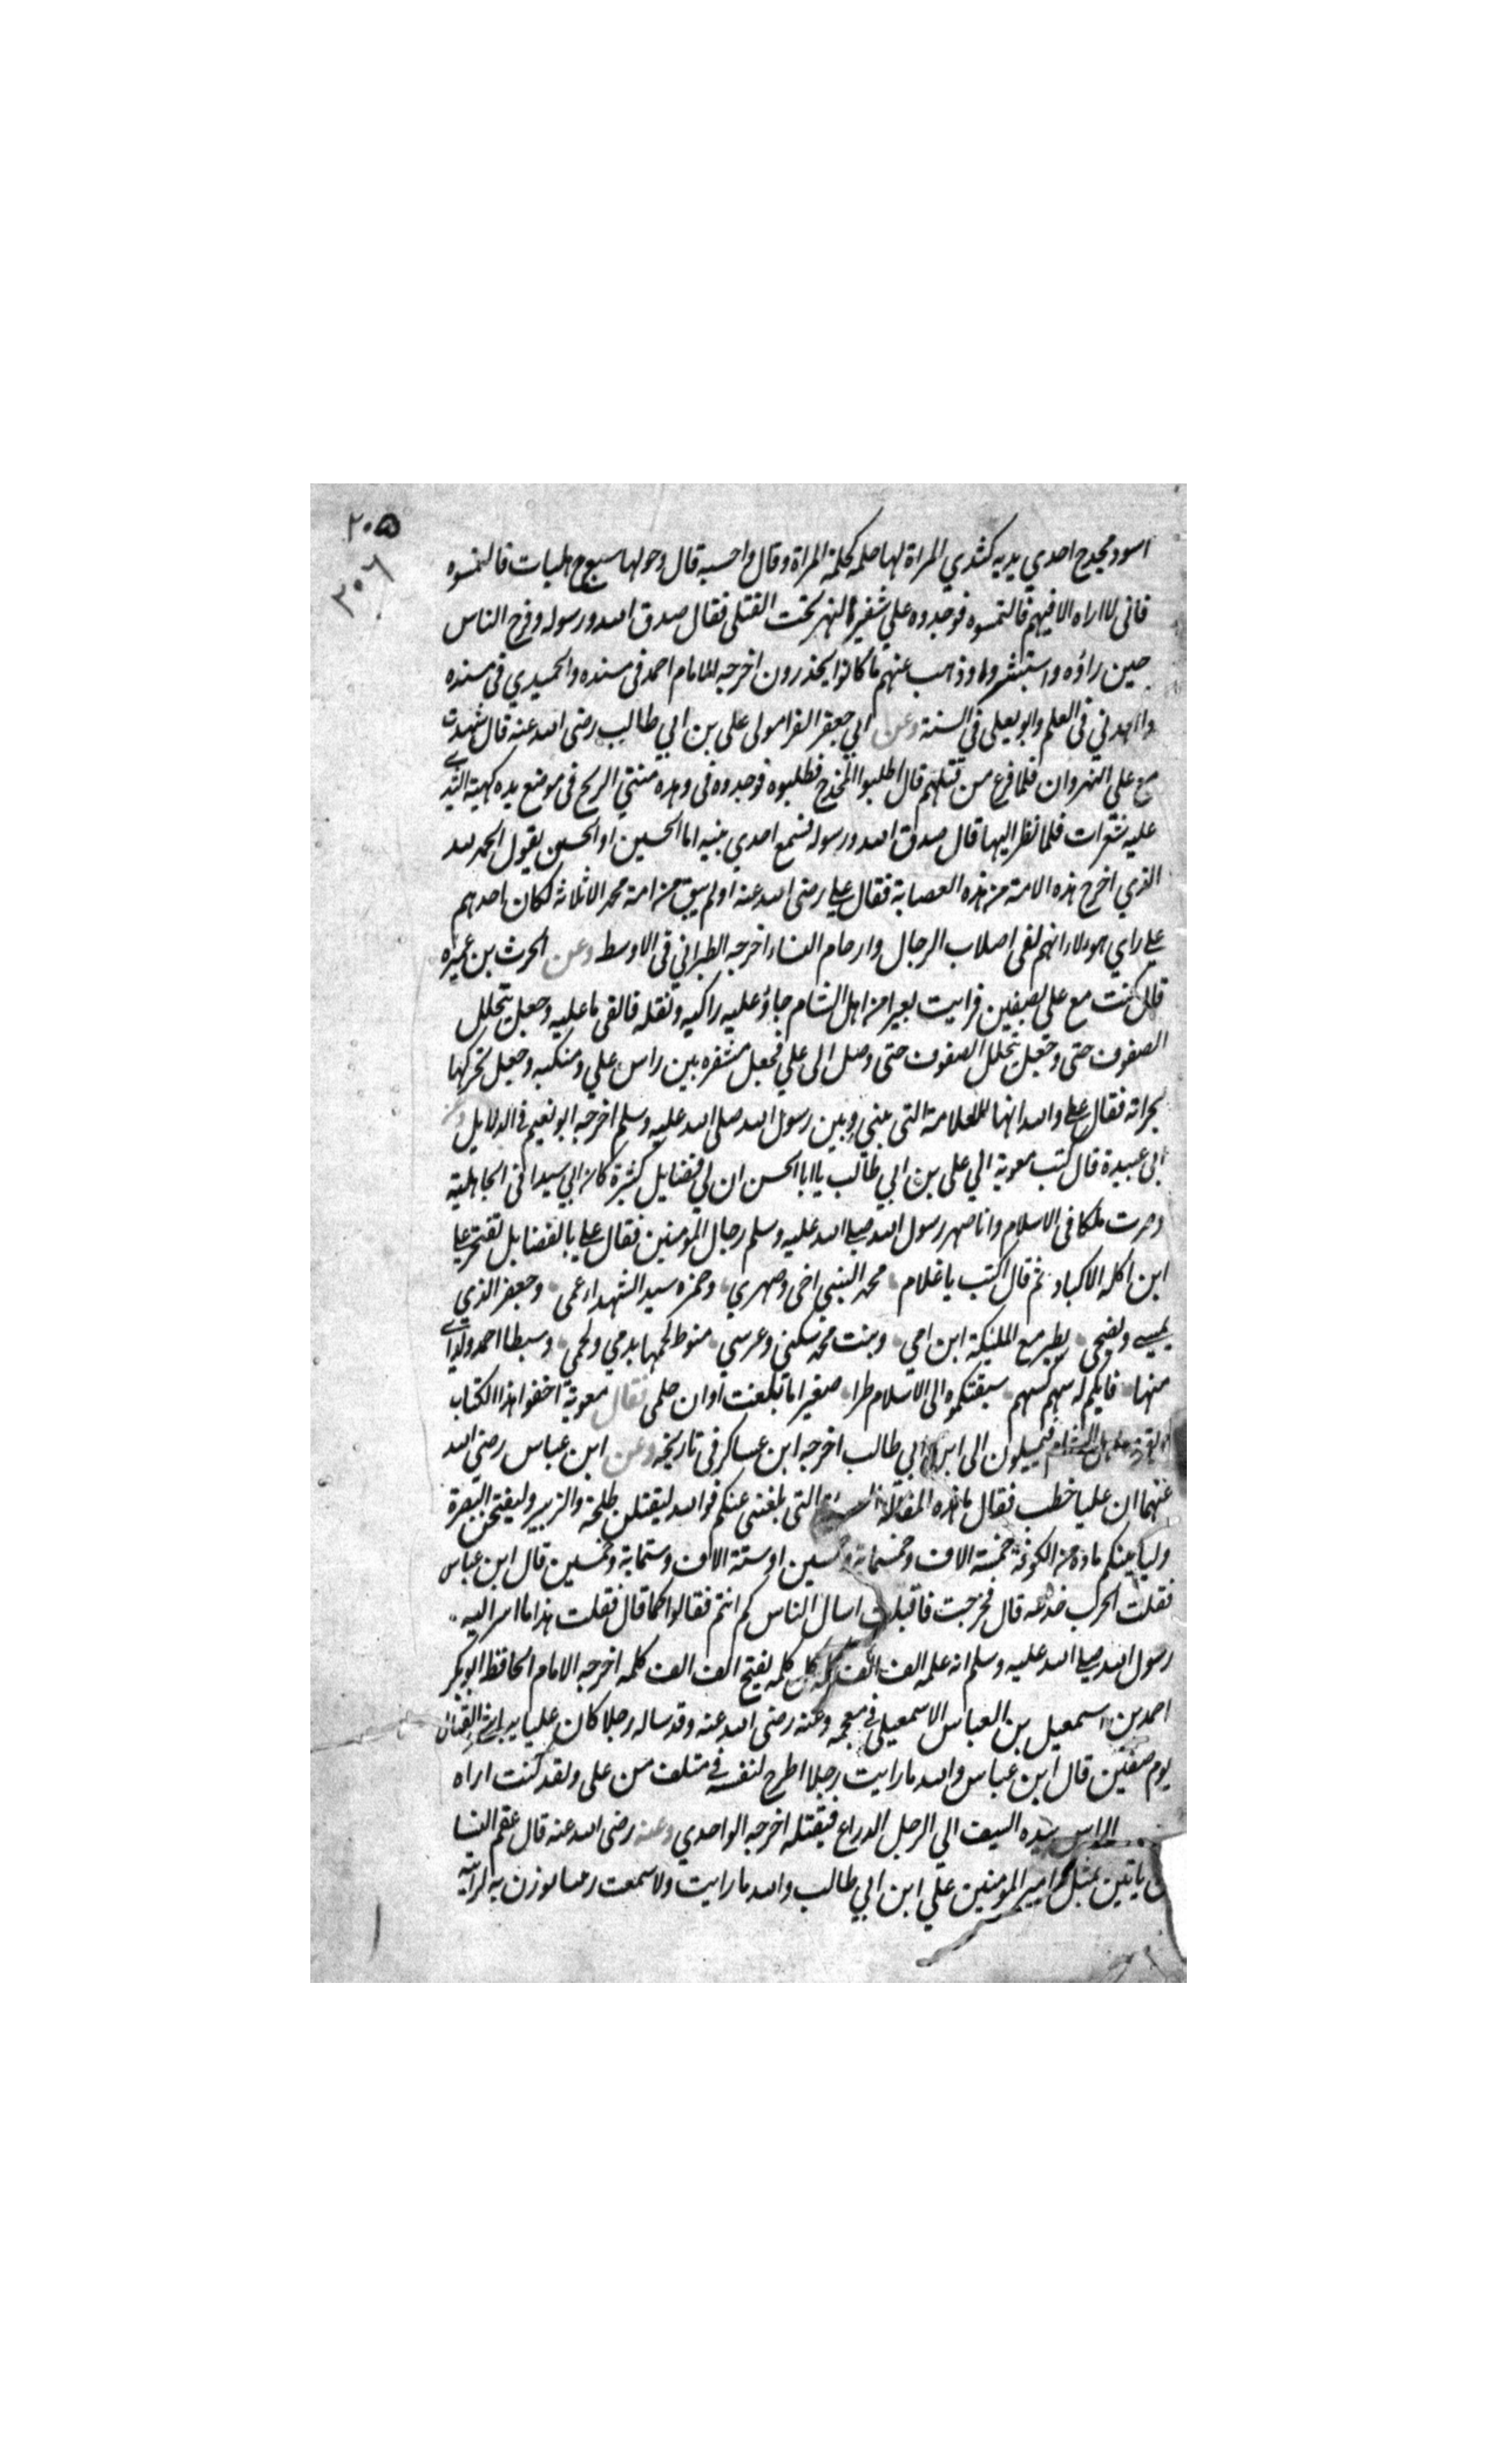 ٢٠٥
٣٠٦
اسود مجدج احدي يديه كثدي المراة لها حلمه كحلمة المراة وقال واحسبه قال وحولها سبع هلبات فالتمسوه
فانى لااراه الا فيهم فالتمسوه فوجدوه علي شفير النهر تحت القتلى فقال صدق الله ورسوله وفرح الناس
حين راؤه واستبشروا وذهب عنهم ما كانوا يحذرون اخرجه الامام احمد فى مسنده والحميدي فى مسنده
والعدني فى العلم وابو يعلى فى السنة وعن ابي جعفر الفرا مولى على بن ابي طالب رضى الله عنه قال شهدت
مع علي النهروان فلما فرغ من قتلهم قال اطلبوا المخدج فطلبوه فوجدوه فى وهده منتني الريح فى موضع يده كهيئة الثدي
عليه شعرات فلما نظر اليها قال صدق الله ورسوله فسمع احدي بنيه اما الحسين او الحسن يقول الحمد لله
الذي اخرج هذه الامة من هذه العصابة فقال علي رضى الله عنه اولم يبق من امة محمد الا ثلاثة لكان احدهم
علي راي هولاء انهم لفى اصلاب الرجال وارحام النساء اخرجه الطبراني فى الاوسط وعن الحرث بن عميره
قال كنت مع على بصفين فرايت بعيرا من اهل الشام جاؤ عليه راكبه وثقله فالقى ما عليه وجعل يتخلل
الصفوف حتى وجعل يتخلل الصفوف حتى وصل الى علي فجعل مشفره بين راس علي ومنكبه وجعل يحركها
بجرانه فقال علي والله انها للعلامة التى بيني وبين رسول الله صلى الله عليه وسلم اخرجه ابو نعيم فى الدلايل وعن
ابى عبيدة قال كتب معوية الي على بن ابي طالب يا ابا الحسن ان لي فضايل كثيرة كان ابي سيدا فى الجاهلية
وصرت ملكا فى الاسلام وانا صهر رسول الله صلي الله عليه وسلم رجال المؤمنين فقال علي يا بالفضايل تفتخر علي
ابن اكله الاكباد ثم قال اكتب يا غلام محمد النبي اخى وصهري وحمزه سيد الشهداء عمى وجعفر الذي
يمسي ويضحى يطير مع المليكة ابن امي وبنت محمد سكني وعرسي منوط لحمها بدمي ولحمى وسبطا احمد ولداي
منها فايكم له سهم كسهم سبقتكموه الى الاسلام طرا صغيرا ما بلغت اوان حلمى فقال معوية اخفوا هذا الكتاب
اهل الشام فيميلون الى ابن ابي طالب اخرجه ابن عساكر فى تاريخه وعن ابن عباس رضى الله
عنهما ان عليا خطب فقال ما هذه المقالة التى بلغتنى عنكم فوالله ليقتلن طلحة والزبير وليفتحن البصرة
وليا تينكم مادة من الكوفة خمسة الاف وخمسماية وخمسين او ستة الاف وستماية وخمسين قال ابن عباس
فقلت الحرب خدعه قال فخرجت فاقبلت اسال الناس كم انتم فقالوا كما قال فقلت هذا ما اسر اليه
رسول الله صلي الله عليه وسلم انه علمه الف الف كلمه كل كلمه يفتح الف الف كلمه اخرجه الامام الحافظ ابو بكر
احمد بن اسمعيل بن العباس الاسمعيلى فى معجمه وعنه رضى الله عنه وقد ساله رجلا كان عليا يباشر القتال
يوم صفين قال ابن عباس والله ما رايت رجلا اطرح لنفسه فى متلف من على ولقد كنت اراه
الراس بيده السيف الي الرجل الدراع فيقتله اخرجه الواحدي وعنه رضى الله عنه قال عقم النسا
ياتين بمثل امير المومنين علي ابن ابي طالب والله ما رايت ولا سمعت يوزن به لرايته